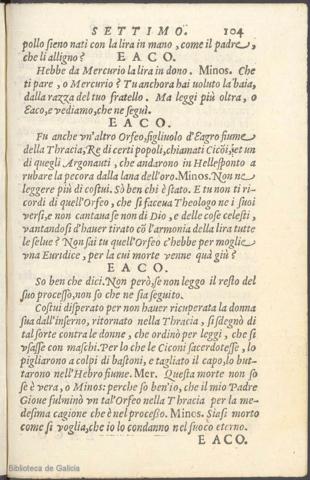 SETTIMO. 104
pollo sieno nati con la lira in mano, come il padre,
che li alligno? EACO.
Hebbe da Mercurio la lira in dono. Minos. Che
ti pare, o Mercurio? Tu anchora hai voluto la baia,
dalla razza del tuo fratello. Ma leggi più oltra, o
Eaco, e vediamo, che ne seguì.
EACO.
Fu anche un'altro Orfeo, figliuolo d'Eagro fiume
della Thracia, Re di certi popoli, chiamati Cicõi, et un
di quegli Argonauti, che andarono in Hellesponto a
rubare la pecora dalla lana dell'oro. Minos. Non ne
leggere più di costui. Sò ben chi è stato. E tu non ti ri-
cordi di quell'Orfeo, che si faceua Theologo ne i suoi
versi, e non cantaua se non di Dio, e delle cose celesti,
vantandosi d'hauer tirato cõ l'armonia della lira tutte
le selue? Non sai tu quell'Orfeo c'hebbe per moglie
vna Euridice, per la cui morte venne quà giù?
EACO.
So ben che dici. Non però, se non leggo il resto del
suo processo, non so che ne sia seguito.
Costui disperato per non hauer ricuperata la donna
sua dall'inferno, ritornato nella Thracia, si sdegnò di
tal sorte contra le donne, che ordinò per leggi, che si
vsasse con maschi. Per lo che le Ciconi sacerdotesse, lo
pigliarono a colpi di bastoni, e tagliato il capo, lo but-
tarono nell'Hebro fiume. Mer. Questa morte non so
se è vera, o Minos: perche so ben'io, che il mio Padre
Gioue fulminò vn tal'Orfeo nella Thracia per la me-
desima cagione che è nel processo. Minos. Siasi morto
come si voglia, che io lo condanno nel fuoco eterno.
EACO.
Biblioteca de Galicia